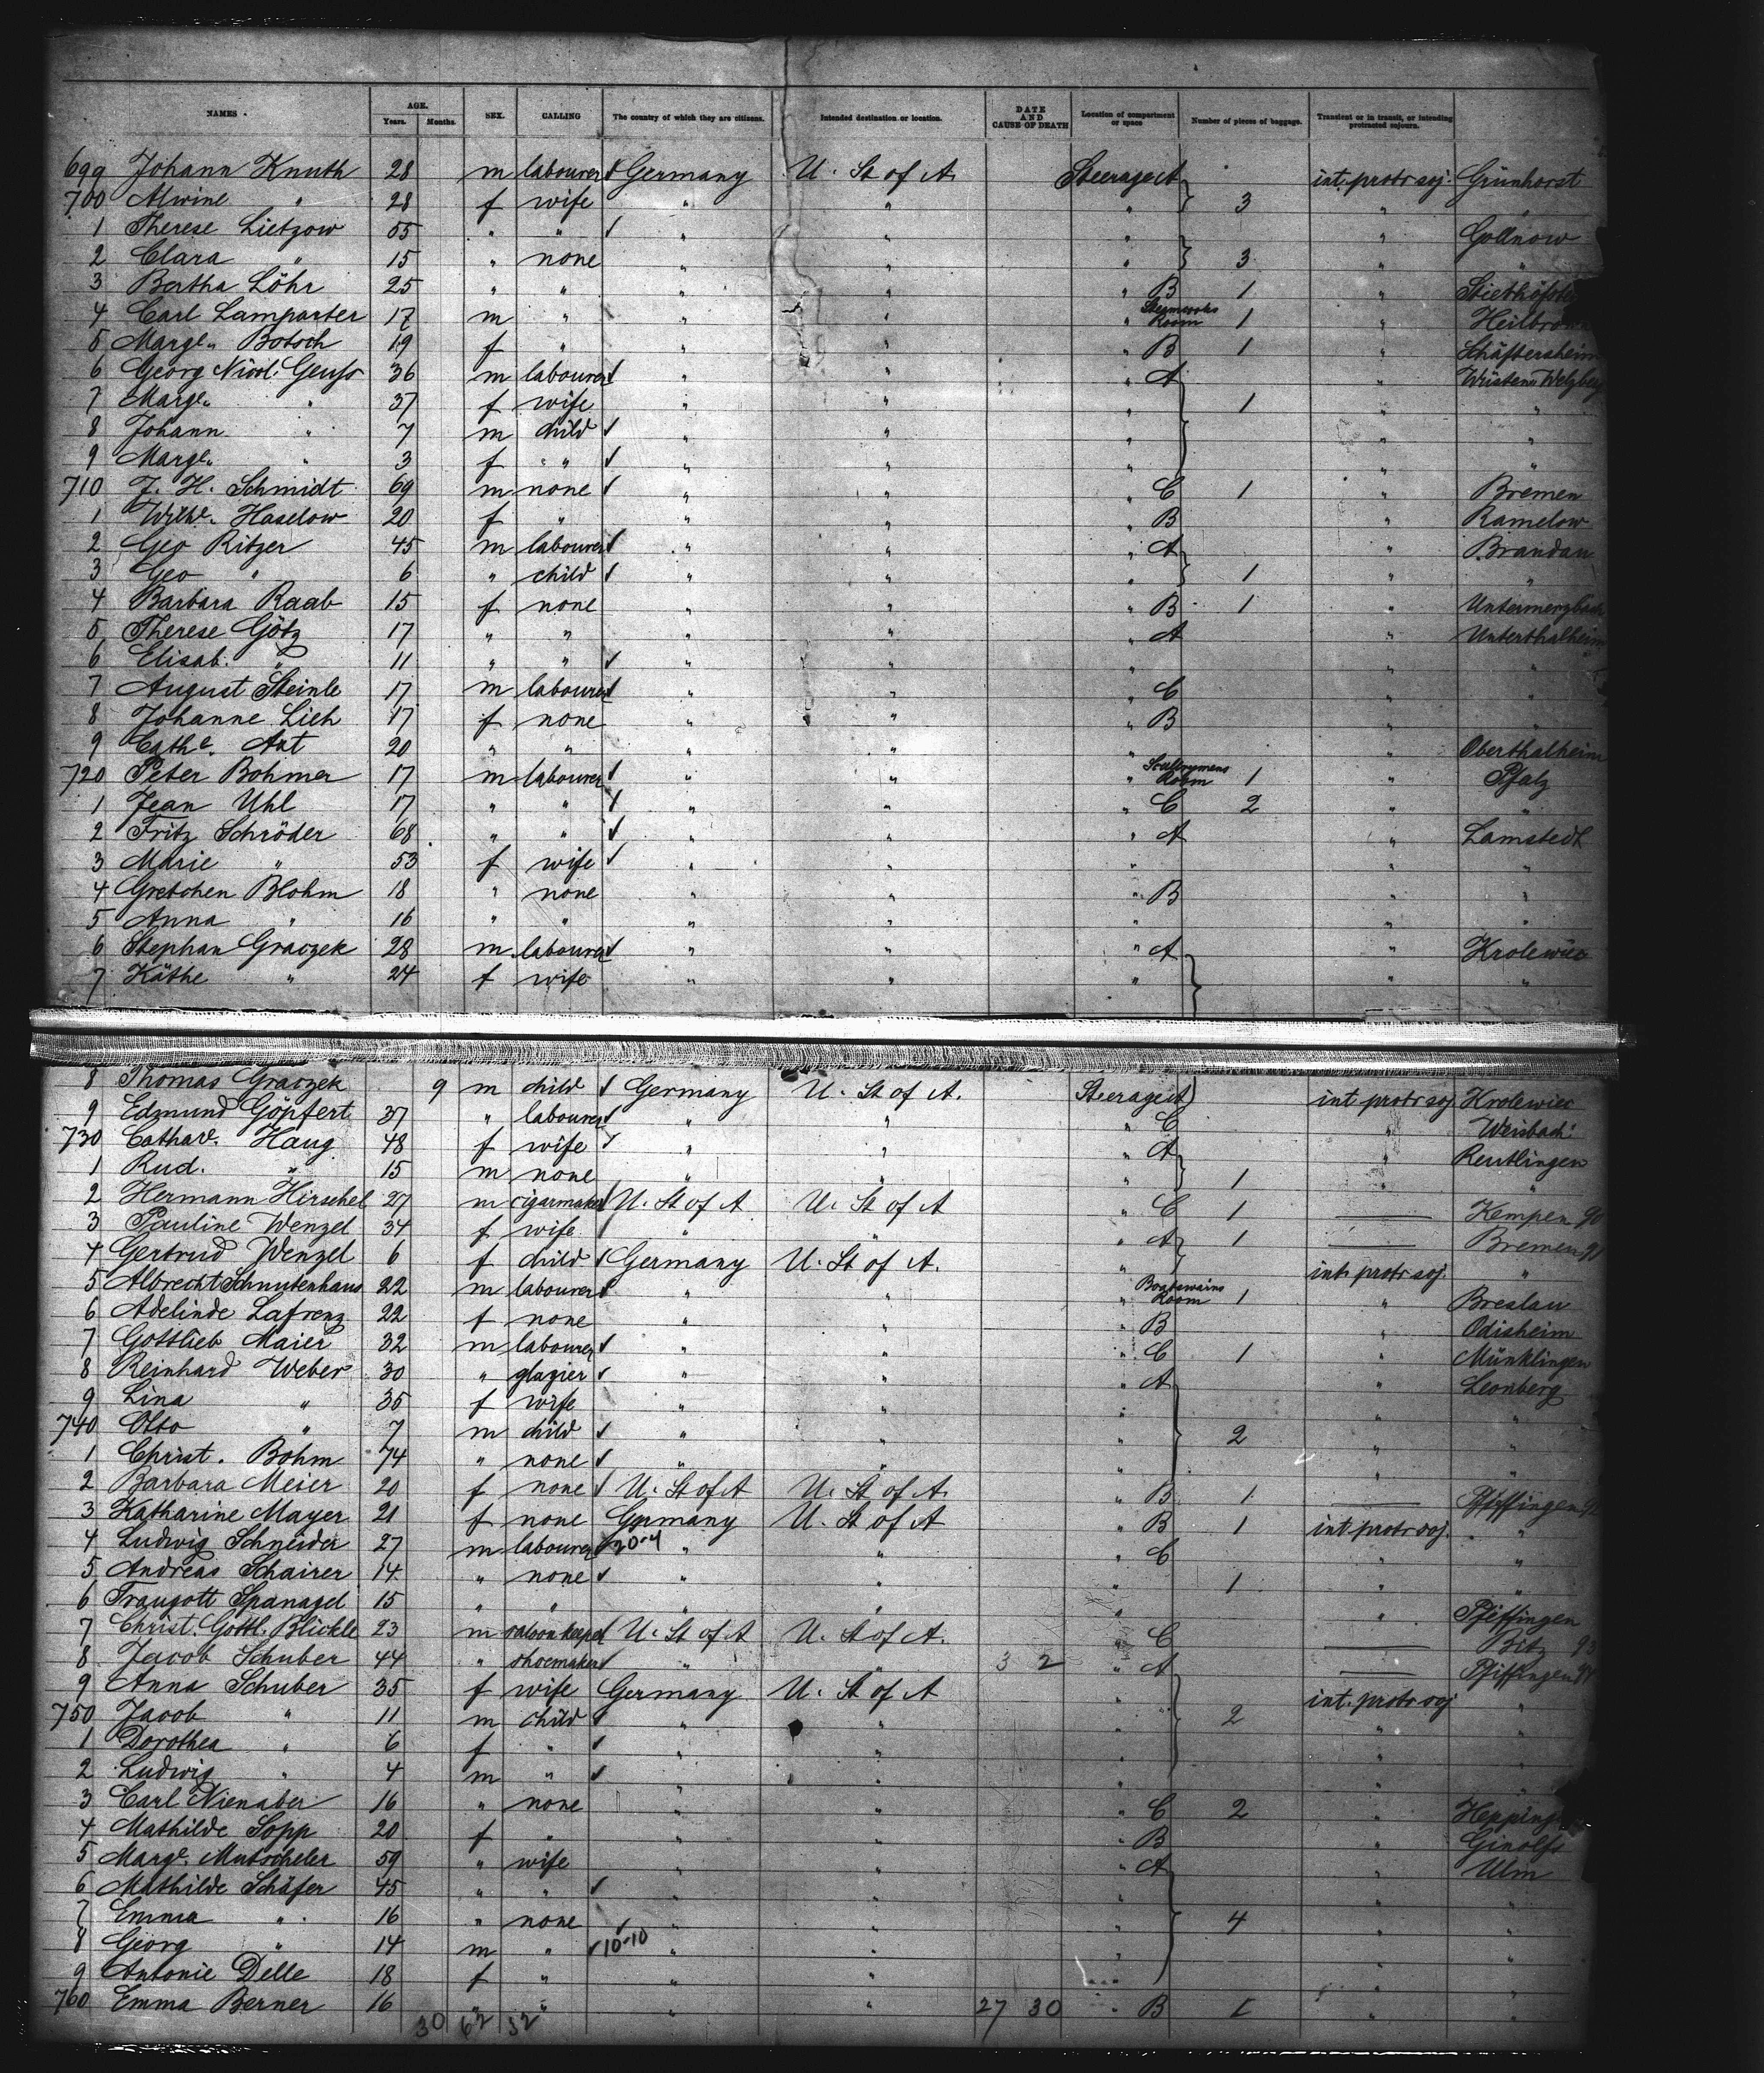 NAMES. AGE. Years. Months. SEX. CALLING The country of which they are citizens. Intended destination or location. DATE AND CAUSE OF DEATH Location of compartment or space Number of pieces of baggage. Transient or in transit, or intending protracted sojourn.
699 Johann Knuth 28 m labourer Germany U. St of A. Steerage A int. protr soj. Grünhorst
700 Alwine " 28 f wife " " " 3 " "
1 Therese Lietzow 55 " " " " " " Gollnow
2 Clara " 15 " none " " " 3 " "
3 Bertha Löhr 25 " " " " " B 1 "
4 Carl Lamparter 17 m " " " " Room 1 "
5 Margt. Botsch 19 f " " " " B 1 " Schäftersheim
6 Georg Nicol. Genss 36 m labourer " " " A "
7 Margt. " 37 f wife " " " 1 " "
8 Johann " 7 m child " " " " "
9 Margt. " 3 f " " " " " "
710 J. H. Schmidt 69 m none " " " C 1 " Bremen
1 Wilhe. Haselow 20 f " " " " B " Ramelow
2 Geo Ritzer 45 m labourer " " " A " Brandau
3 Geo " 6 " child " " " 1 " "
4 Barbara Raab 15 f none " " " B 1 " Untermerzbach
5 Therese Götz 17 " " " " " A " Unterthalheim
6 Elisab. " 11 " " " " " " "
7 August Steinle 17 m labourer " " " C " "
8 Johanne Lieh 17 f none " " " B " "
9 Cathe. Axt 20 " " " " " " Oberthalheim
720 Peter Bohmer 17 m labourer " " " Room 1 " Pfalz
1 Jean Uhl 17 " " " " " C 2 " "
2 Fritz Schröder 68 " " " " " A " Lamstedt
3 Marie " 53 f wife " " " " "
4 Gretchen Blohm 18 " none " " " B " "
5 Anna " 16 " " " " " " "
6 Stephan Graczek 28 m labourer " " " A " Krolewiec
7 Käthe " 24 f wife " " " " "
8 Thomas Graczek 9 m child Germany U. St of A. Steerage A int. protr soj Krolewiec
9 Edmund Göpfert 37 " labourer " " " C " Weisbach
730 Cathar. Haug 48 f wife " " " A " Reutlingen
1 Rud. " 15 m none " " " 1 " "
2 Hermann Hirschel 27 m cigarmaker U. St of A U. St of A " C 1 Kempen 90
3 Pauline Wenzel 34 f wife " " " A 1 Bremen 91
4 Gertrud Wenzel 6 f child Germany U. St of A. " int. protr soj. "
5 Albrecht Schnutenhaus 22 m labourer " " " Boatswains Room 1 " Breslau
6 Adelinde Lafrenz 22 f none " " " B " Odisheim
7 Gottlieb Maier 32 m labourer " " " C 1 " Münklingen
8 Reinhard Weber 30 " glazier " " " A " Leonberg
9 Lina " 35 f wife " " " " "
740 Otto " 7 m child " " " 2 " "
1 Christ. Bohm 74 " none " " " " "
2 Barbara Meier 20 f none U. St of A U. St of A. " B 1 Pfeffingen 92
3 Katharine Mayer 21 f none Germany U. St of A " B 1 int. protr soj. "
4 Ludwig Schneider 27 m labourer 20-4 " " " C " "
5 Andreas Schairer 14 " none " " " 1 " "
6 Traugott Spanagel 15 " " " " " " Pfeffingen
7 Christ. Gottl. Blickle 23 m saloonkeeper U. St of A U. St of A. " C Bitz 93
8 Jacob Schuber 44 " shoemaker " " 3 2 " A Pfeffingen 94
9 Anna Schuber 35 f wife Germany U. St of A " int. protr soj "
750 Jacob " 11 m child " " " 2 " "
1 Dorothea " 6 f " " " " " "
2 Ludwig " 4 m " " " " " "
3 Carl Nienaber 16 " none " " " C 2 "
4 Mathilde Sopp 20 f " " " " B " Ginolfs
5 Margt. Mutscheler 59 " wife " " " A " Ulm
6 Mathilde Schäfer 45 " " " " " " "
7 Emma " 16 " none " " " 4 " "
8 Georg " 14 m " 10-10 " " " " "
9 Antonie Delle 18 f " " " " "
760 Emma Berner 16 " " " " 27 30 " B 1 " "
30 62 32